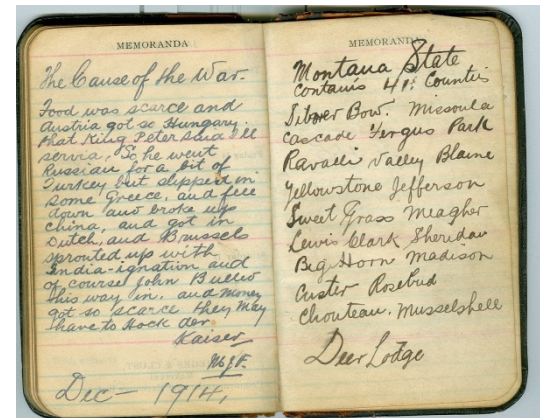 MEMORANDA
The Cause of the War.
Food was scarce and
Austria got so Hungary.
That King Peter said I'll
servia, So he went
Russian for a bit of
Turkey but slipped in
some Greece, and fell
down and broke up
china, and got in
Dutch, and Brussels
sprouted up with
India-ignation and
of course John Bulled
his way in. and money
got so scarce they may
have to Hock der
Kaiser
Dec - 1914,
MEMORANDA
Montana State
contains 41 Counties
Silver Bow. Missoula
Cascade Fergus Park
Ravalli Valley Blaine
Yellowstone Jefferson
Sweet Grass Meagher
Lewis Clark Sheridan
Big Horn Madison
Custer Rosebud
Chouteau. Musselshell
Deer Lodge